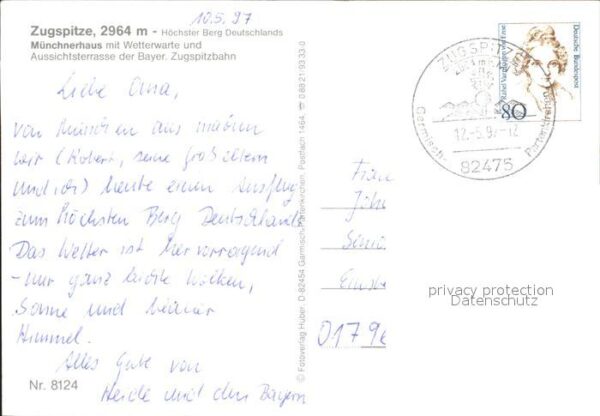 10.5.97
Zugspitze, 2964 m - Höchster Berg Deutschlands
Münchnerhaus mit Wetterwarte und
Aussichtsterrasse der Bayer. Zugspitzbahn
Liebe Oma,
von München aus machen
wir (Robert, seine Großeltern
und ich) heute einen Ausflug
zum höchsten Berg Deutschlands
Das Wetter ist hervorragend
- nur ganz leichte Wolken,
Sonne und blauer
Himmel.
Alles Gute von
Heide und den Bayern
Nr. 8124
© Fotoverlag Huber, D-82454 Garmisch-Partenkirchen, Postfach 1464, 0 88 21-93 33-0
ZUGSPITZE
2964 m
12.-5.97-12
Garmisch-Partenkirchen
82475
Deutsche Bundespost
Rahel Varnhagen von Ense
80
Frau
0179
privacy protection
Datenschutz